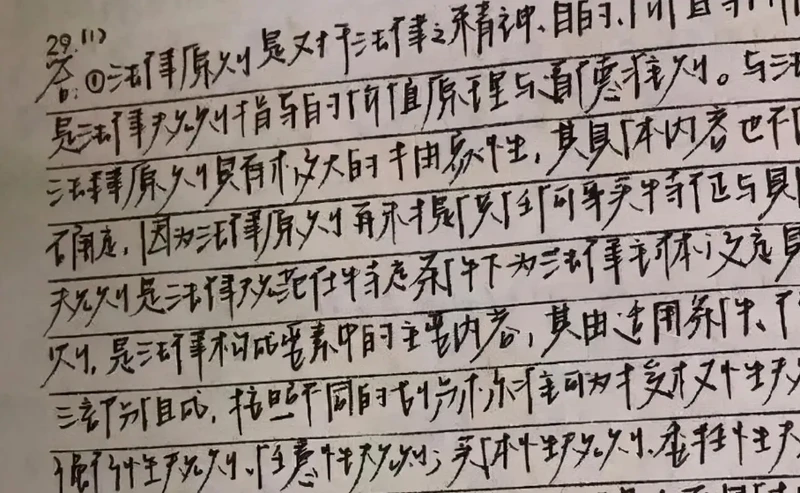 29.(1)
答:①法律原则是对于法律之精神、目的、价值
是法律规则指导的价值原理与道德准则。与法
法律原则具有极大的抽象性,其具体内容也不
确定,因为法律原则并未提供任何事实特征与具
规则是法律规范在特定条件下为法律主体设定具
则,是法律构成要素中的主要内容,其由适用条件、
三部分组成,按照不同的划分标准可为授权性规
强行性规则、任意性规则;实体性规则、委任性